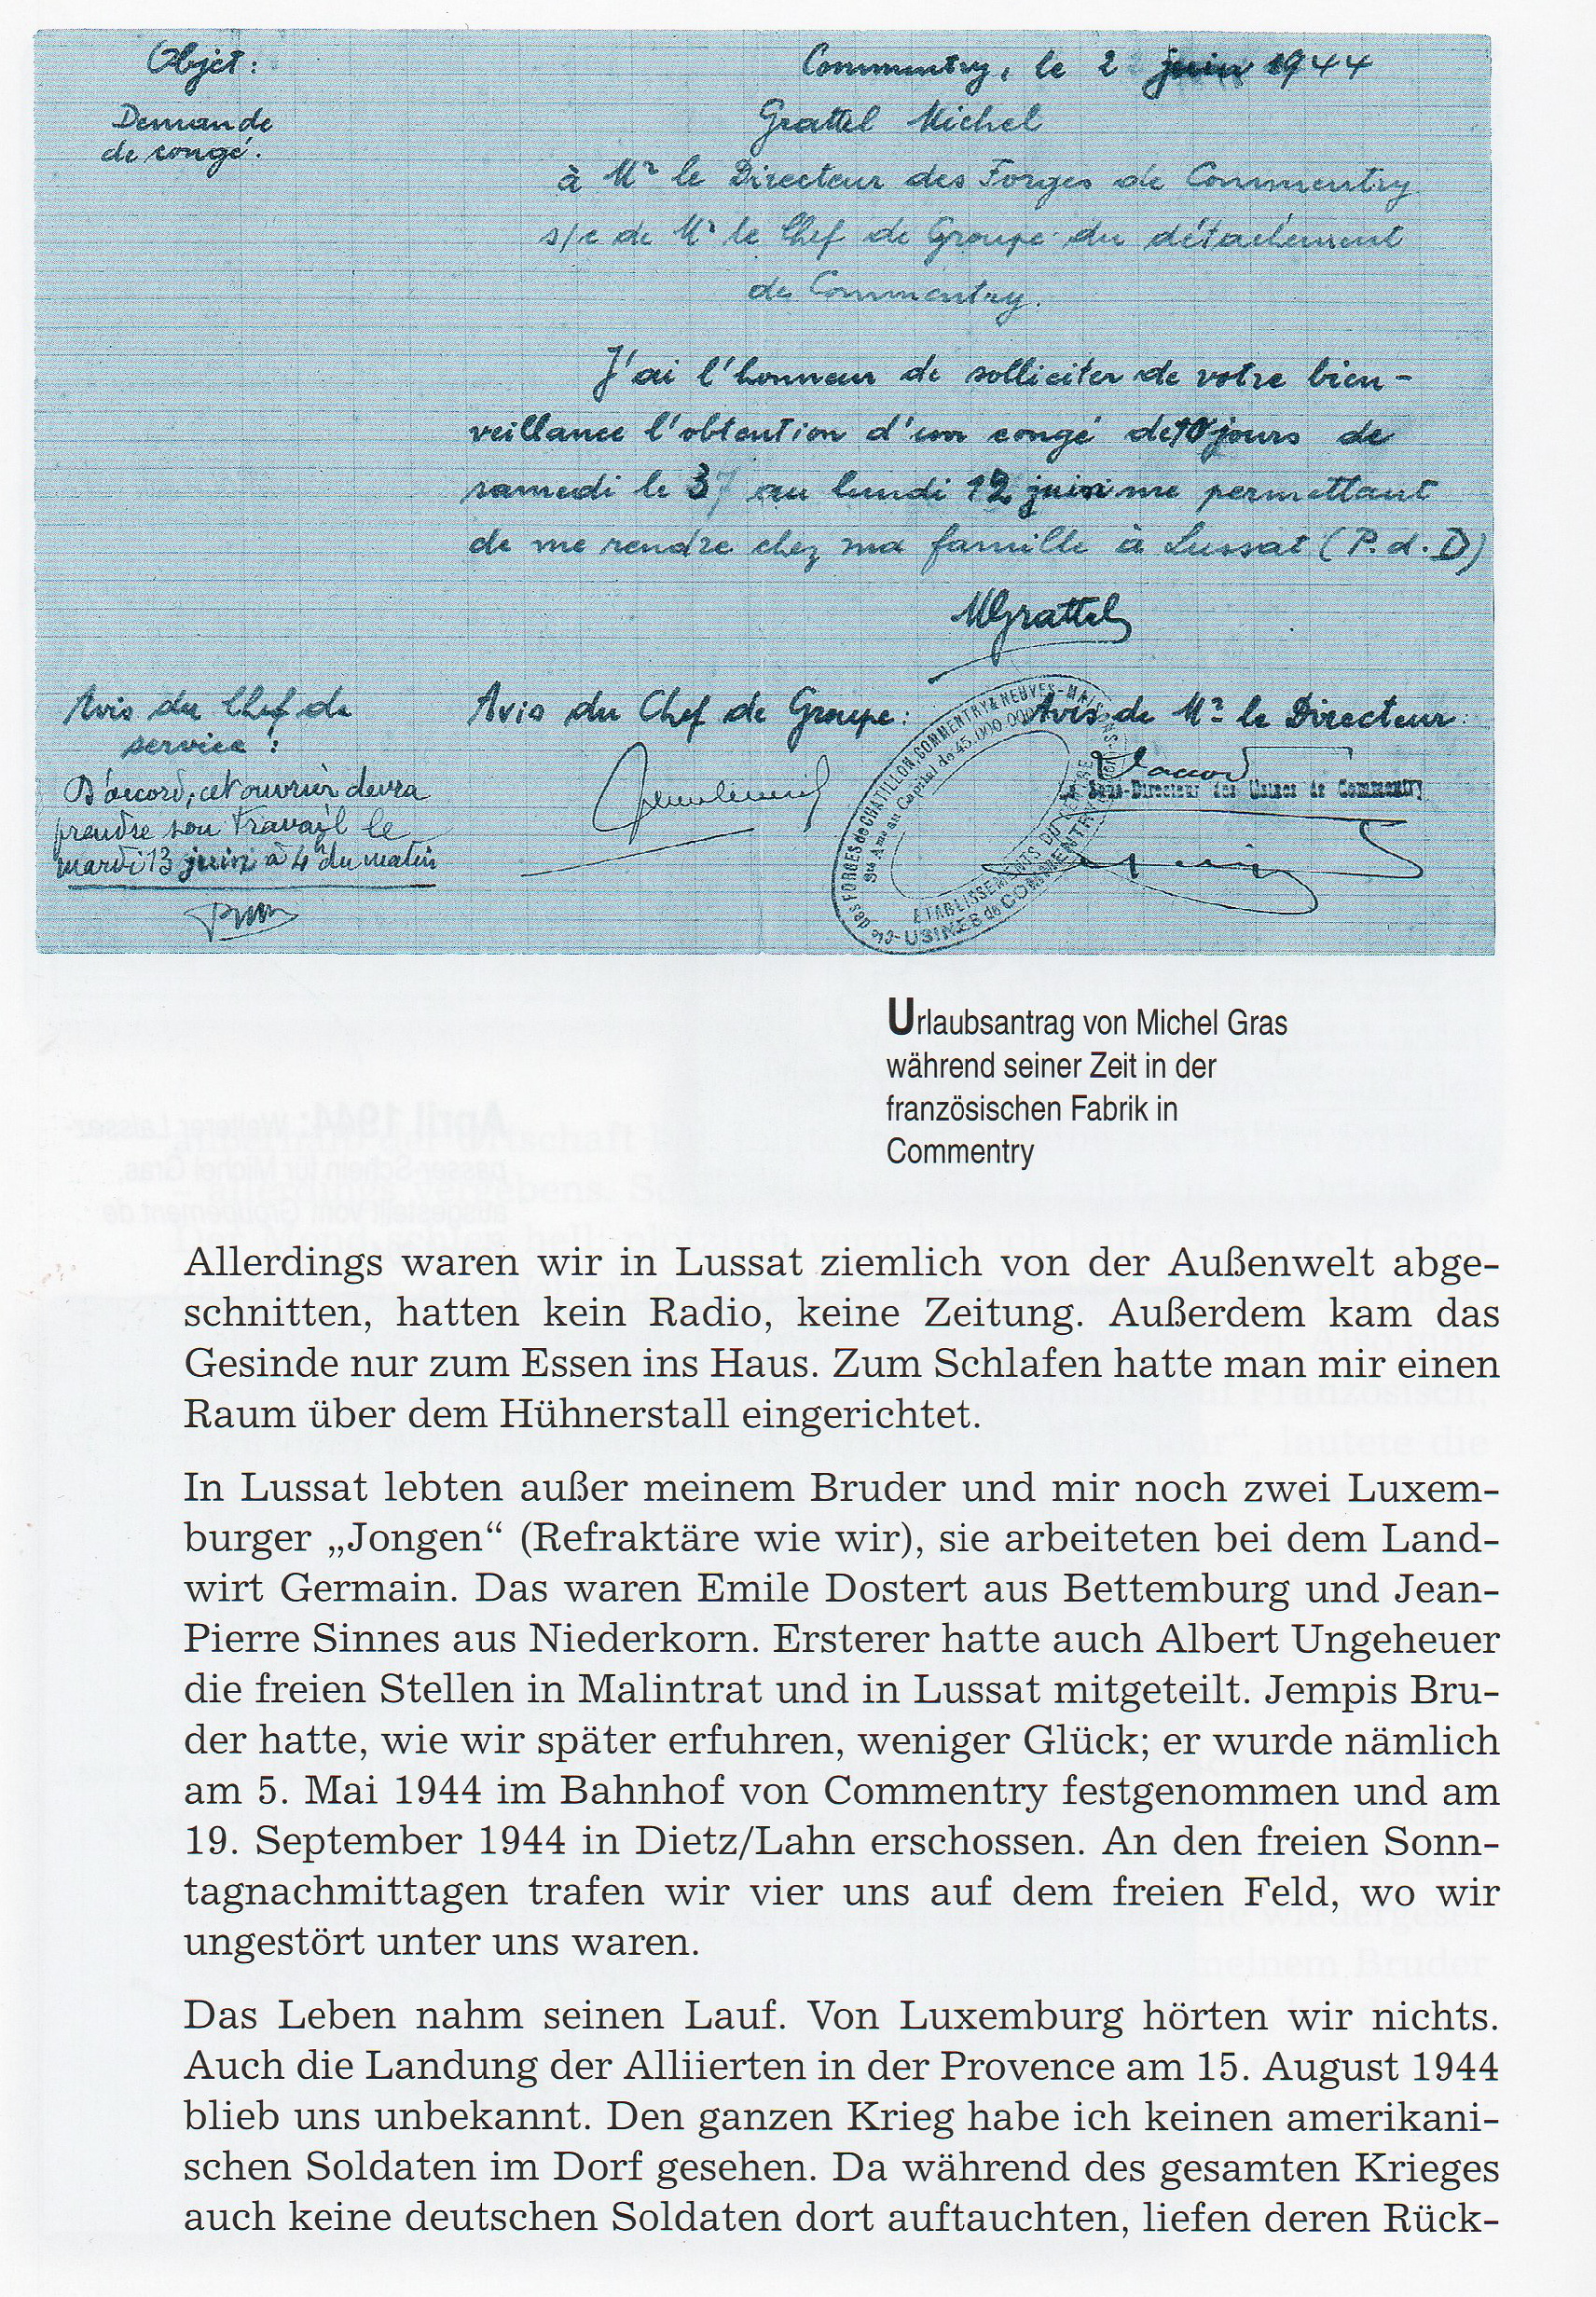 Objet :
Demande
de congé.
Commentry, le 2 juin 1944
Grattel Michel
à Mr le Directeur des Forges de Commentry
s/c de Mr le Chef de Groupe du détachement
de Commentry.
J'ai l'honneur de solliciter de votre bien-
veillance l'obtention d'un congé de 10 jours de
samedi le 3 au lundi 12 juin me permettant
de me rendre chez ma famille à Lussat (P. d. D)
MGrattel
Avis du Chef de
service :
D'accord, cet ouvrier devra
prendre son travail le
mardi 13 juin à 4 du matin
Avis du Chef de Groupe :
Avis de Mr le Directeur :
D'accord
Le Sous-Directeur des Usines de Commentry
Cie des FORGES de CHATILLON, COMMENTRY & NEUVES-MAISONS
Sté Ame au Capital de 45.000.000
ETABLISSEMENTS DU CENTRE
USINES de COMMENTRY
Urlaubsantrag von Michel Gras
während seiner Zeit in der
französischen Fabrik in
Commentry
Allerdings waren wir in Lussat ziemlich von der Außenwelt abge-
schnitten, hatten kein Radio, keine Zeitung. Außerdem kam das
Gesinde nur zum Essen ins Haus. Zum Schlafen hatte man mir einen
Raum über dem Hühnerstall eingerichtet.
In Lussat lebten außer meinem Bruder und mir noch zwei Luxem-
burger „Jongen“ (Refraktäre wie wir), sie arbeiteten bei dem Land-
wirt Germain. Das waren Emile Dostert aus Bettemburg und Jean-
Pierre Sinnes aus Niederkorn. Ersterer hatte auch Albert Ungeheuer
die freien Stellen in Malintrat und in Lussat mitgeteilt. Jempis Bru-
der hatte, wie wir später erfuhren, weniger Glück; er wurde nämlich
am 5. Mai 1944 im Bahnhof von Commentry festgenommen und am
19. September 1944 in Dietz/Lahn erschossen. An den freien Sonn-
tagnachmittagen trafen wir vier uns auf dem freien Feld, wo wir
ungestört unter uns waren.
Das Leben nahm seinen Lauf. Von Luxemburg hörten wir nichts.
Auch die Landung der Alliierten in der Provence am 15. August 1944
blieb uns unbekannt. Den ganzen Krieg habe ich keinen amerikani-
schen Soldaten im Dorf gesehen. Da während des gesamten Krieges
auch keine deutschen Soldaten dort auftauchten, liefen deren Rück-